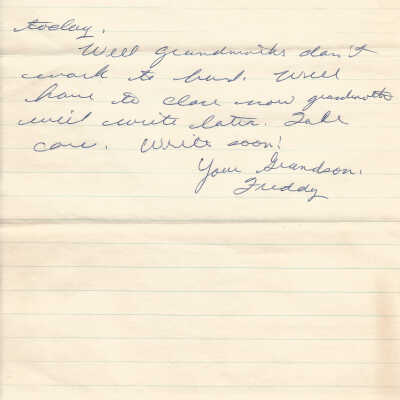 today.
Well grandmother don't
work to hard. Well
have to close now grandmother
will write later. Take
care. Write soon!
Your Grandson.
Freddy